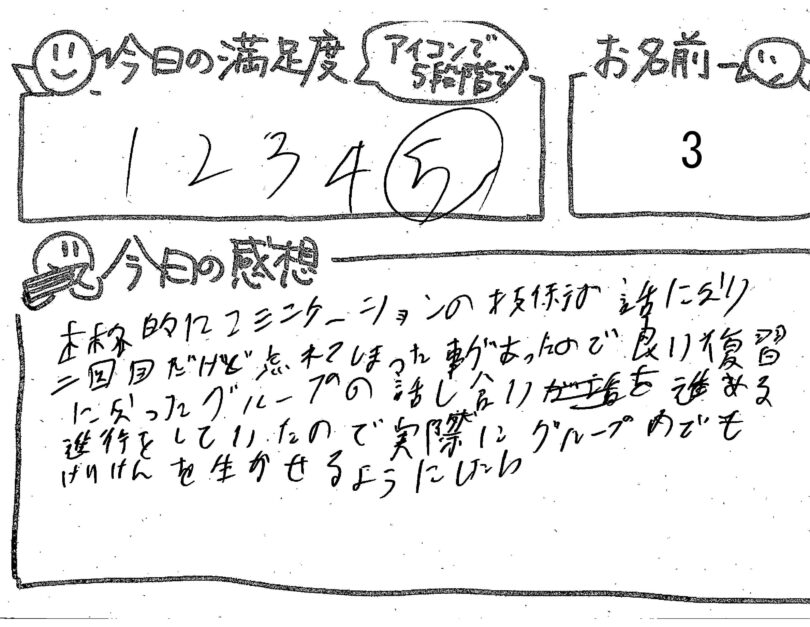 今日の満足度
アイコンで
5段階で
お名前
1 2 3 4 5
3
今日の感想
本格的にコミニケーションの 話になり
二回目だけど忘れてしまった事があったので良い復習
になったグループの話し合い を進める
進行をしていたので実際にグループ内でも
けいけんを生かせるようにしたい